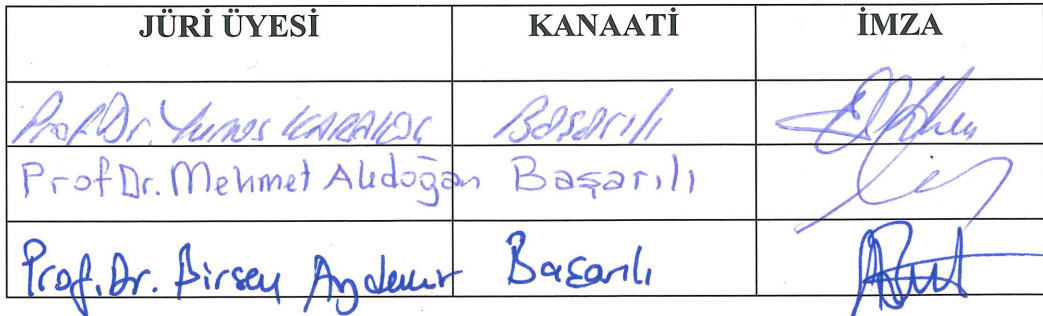 JÜRİ ÜYESİ KANAATİ İMZA
Prof Dr. Yunus Başarılı
Prof Dr. Mehmet Alidoğan Başarılı
Prof. Dr. Birsen Aydemir Başarılı